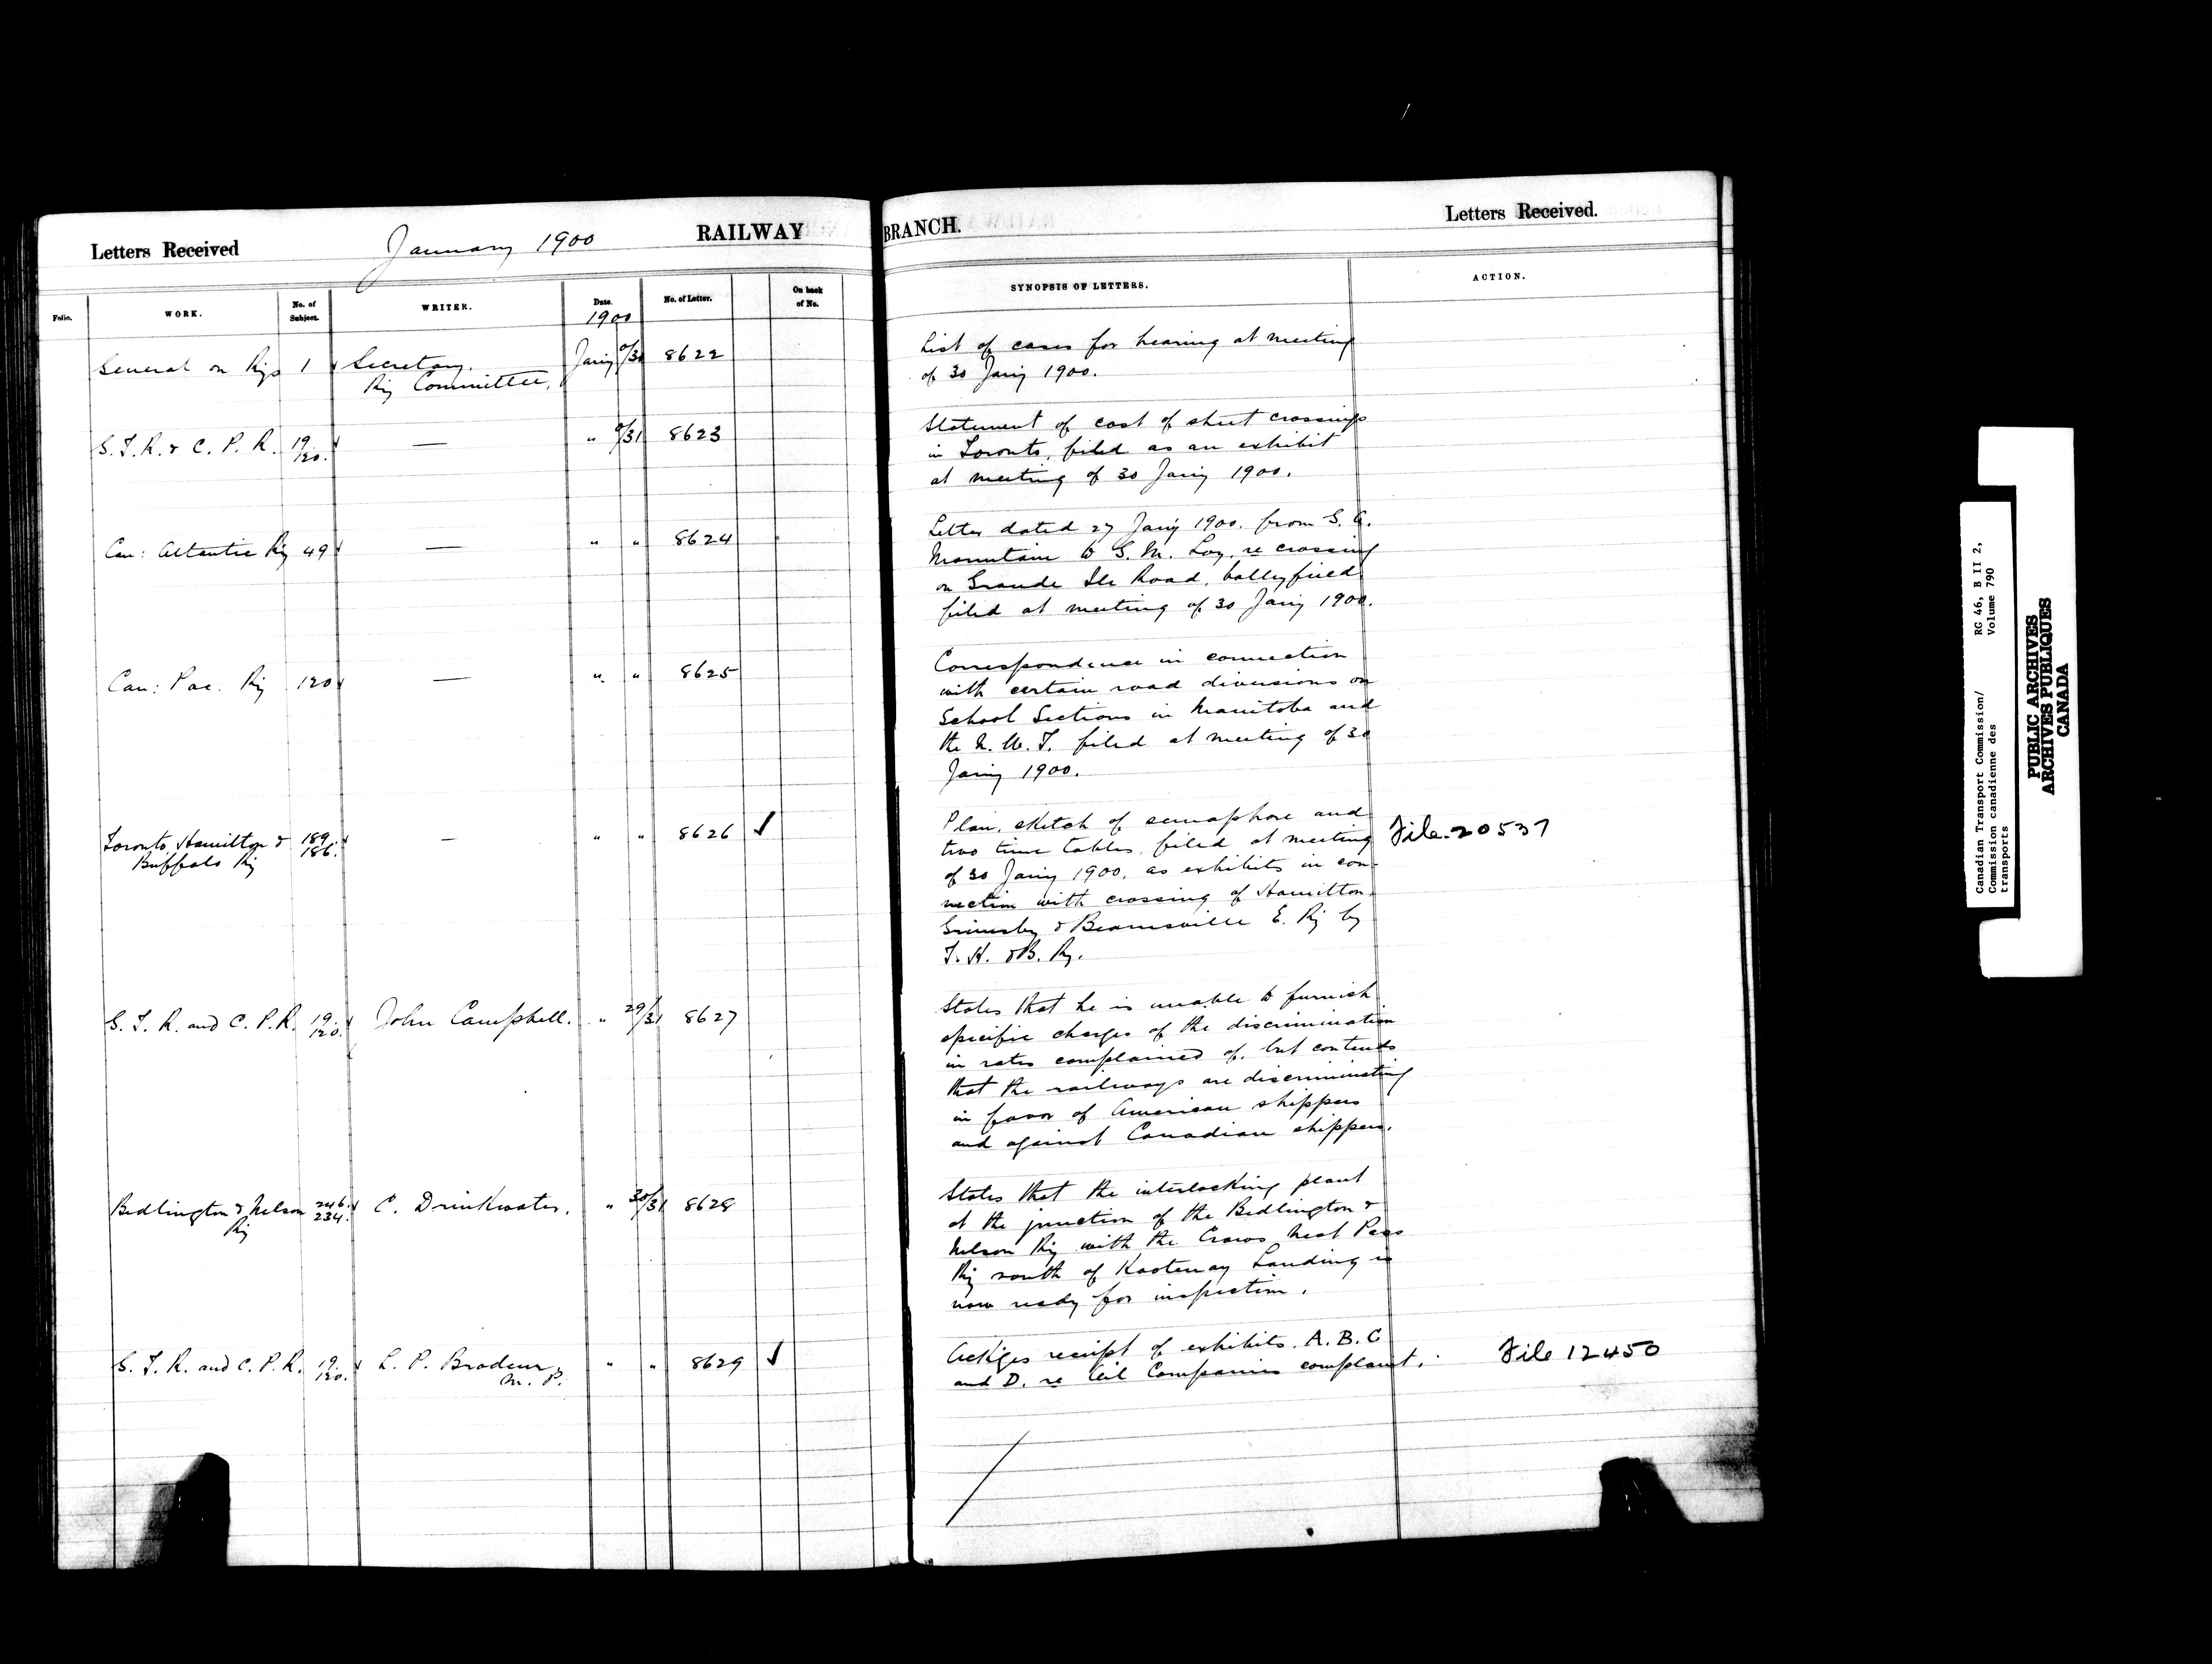 Letters Received
January 1900
RAILWAY BRANCH.
Letters Received.
Folio.
WORK.
No. of Subject.
WRITER.
Date. 1900
No. of Letter.
On back of No.
SYNOPSIS OF LETTERS.
ACTION.
General on Rys 1 Secretary. Jan'y 0/31 8622
Ry Committee.
List of cases for hearing at meeting
of 30 Jan'y 1900.
G. T. R. & C. P. R. 19./120. — " 0/31 8623
Statement of cost of street crossings
in Toronto, filed as an exhibit
at meeting of 30 Jan'y 1900.
Can: Atlantic Ry 49 — " " 8624
Letter dated 27 Jan'y 1900. from G. A.
Mountain to G. M. Loy, re crossing
on Grande Ile Road, Valleyfield
filed at meeting of 30 Jan'y 1900.
Can: Pac: Ry 120 — " " 8625
Correspondence in connection
with certain road diversions on
School Sections in Manitoba and
the N. W. T. filed at meeting of 30
Jan'y 1900.
Toronto, Hamilton & 189./186. — " " 8626 ✓
Buffalo Ry
Plan, sketch of semaphore and
two time tables, filed at meeting
of 30 Jan'y 1900, as exhibits in con-
nection with crossing of Hamilton
Grimsby & Beamsville E. Ry by
T. H. & B. Ry.
File. 20537
G. T. R. and C. P. R. 19./120. John Campbell. " 29/31 8627
States that he is unable to furnish
specific charges of the discrimination
in rates complained of, but contends
that the railways are discriminating
in favor of American shippers
and against Canadian shippers.
Bedlington & Nelson 246./234. C. Drinkwater. " 30/31 8628
Ry
States that the interlocking plant
at the junction of the Bedlington &
Nelson Ry with the Crows Nest Pass
Ry south of Kootenay Landing is
now ready for inspection.
G. T. R. and C. P. R. 19./120. L. P. Brodeur, " " 8629 ✓
M. P.
Ackges receipt of exhibits. A. B. C
and D. re Oil Companies complaint.
File 12450
Canadian Transport Commission/
Commission canadienne des
transports
RG 46, B II 2,
Volume 790
PUBLIC ARCHIVES
ARCHIVES PUBLIQUES
CANADA